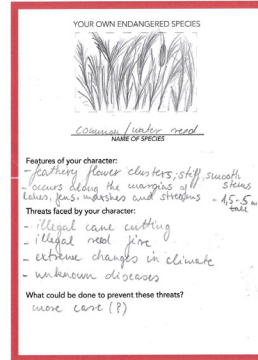 YOUR OWN ENDANGERED SPECIES
common / water reed
NAME OF SPECIES
Features of your character:
- feathery flower clusters, stiff, smooth
stems
- occurs along the margins of
lakes, fens, marshes and streams - 1,5-5 m
tall
Threats faced by your character:
- illegal cane cutting
- illegal reed fire
- extreme changes in climate
- unknown diseases
What could be done to prevent these threats?
more care (?)